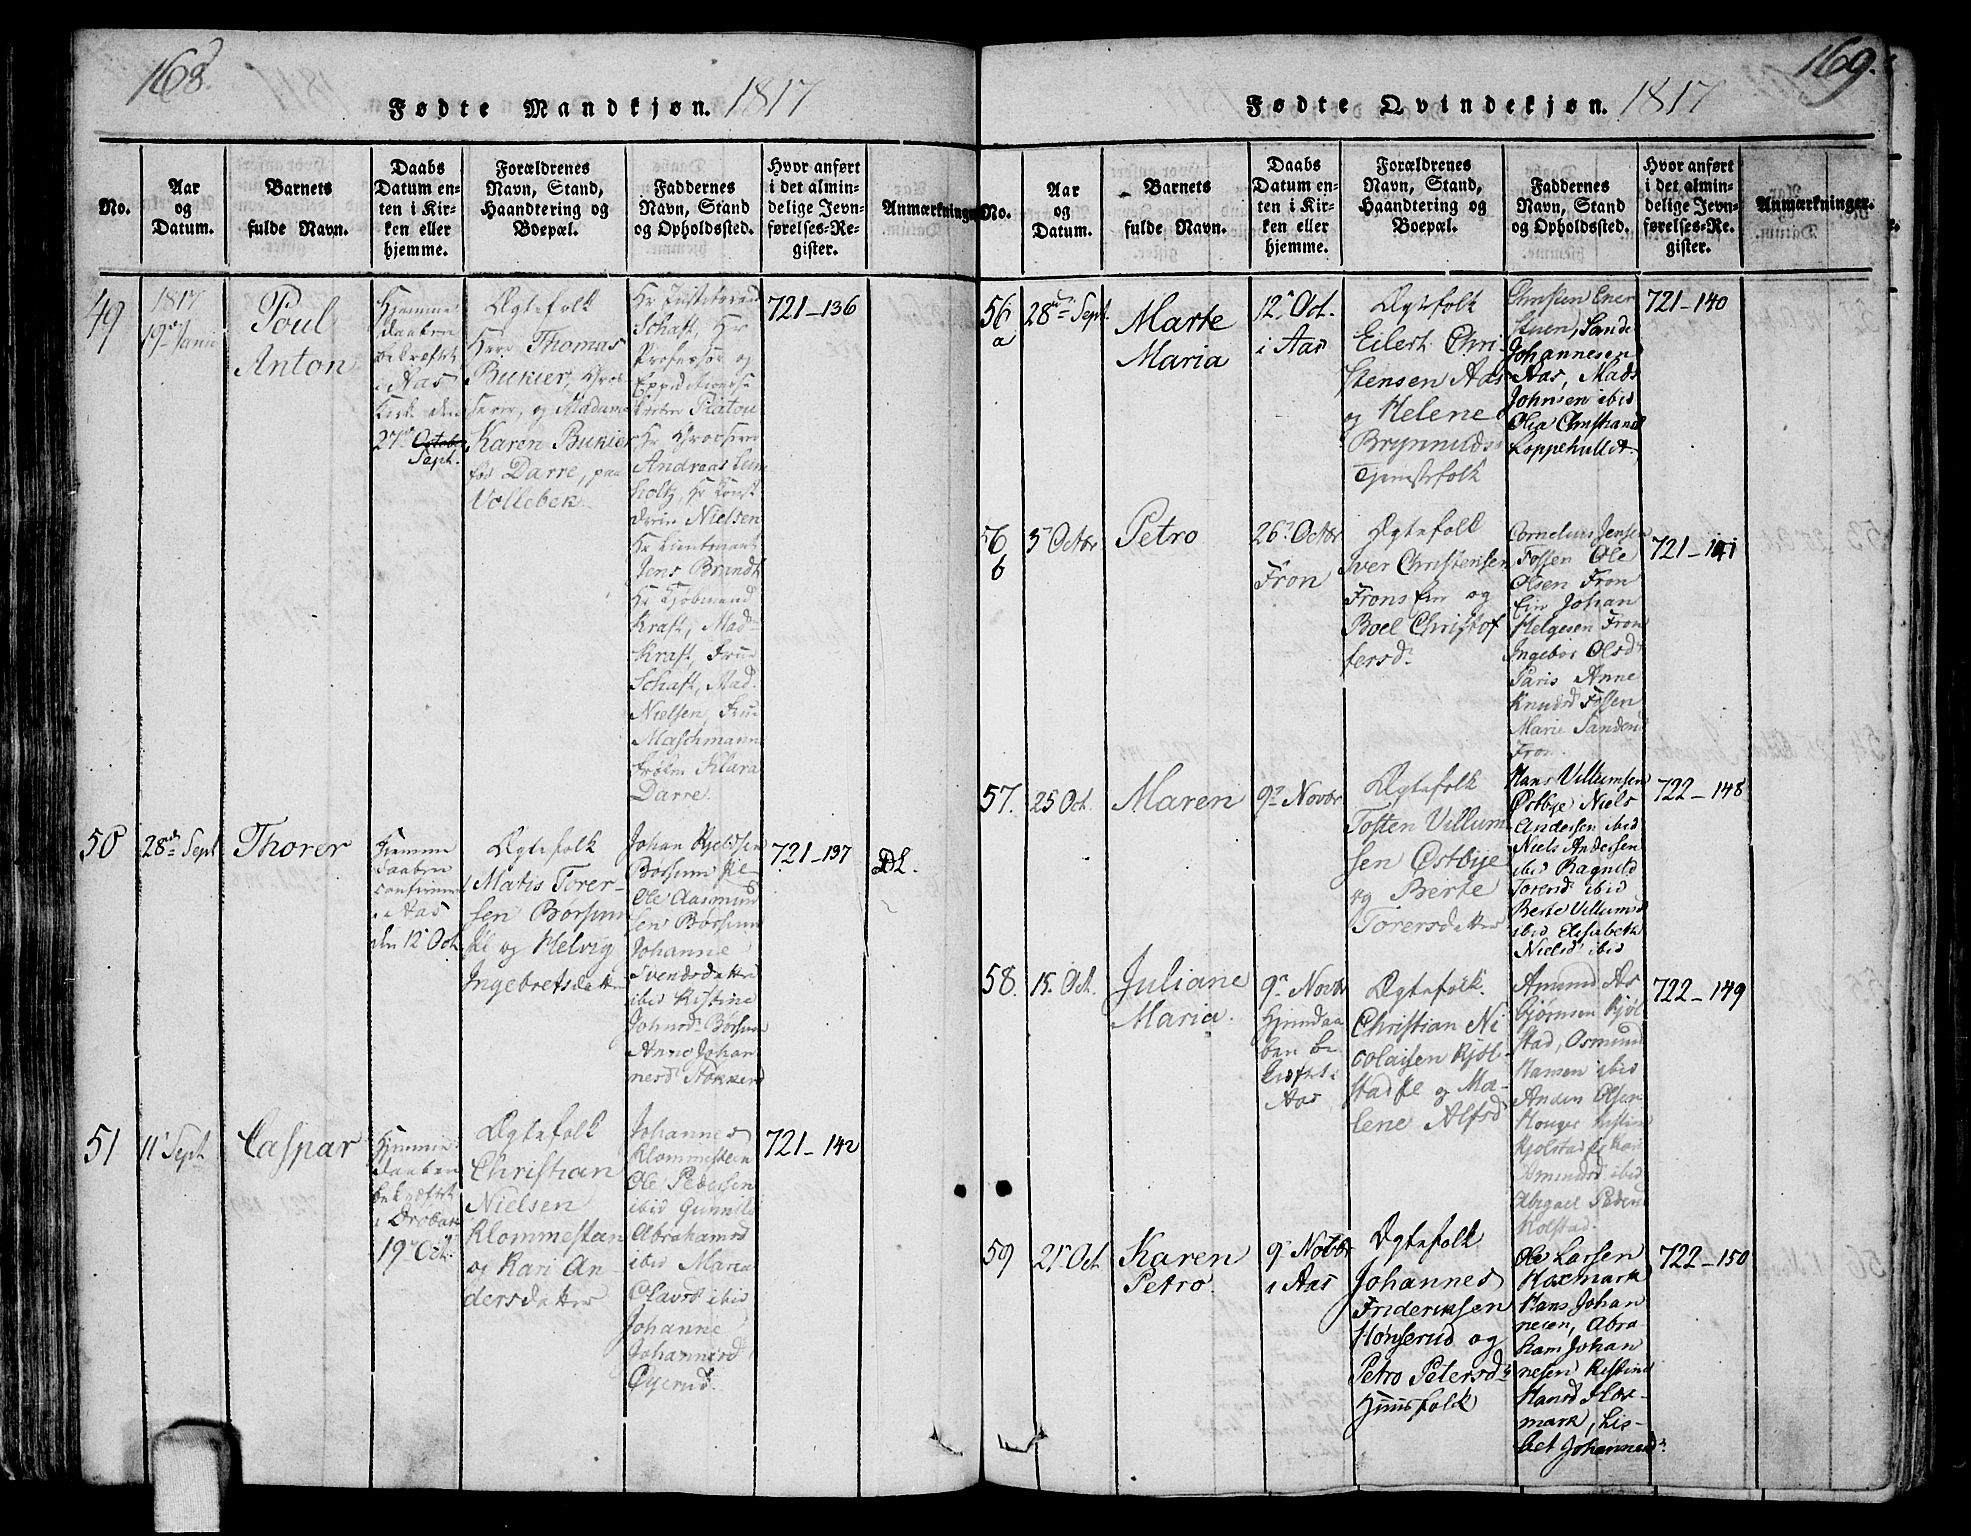 168.
Fødte Mandkjøn. 1817
No.
Aar
og
Datum.
Barnets
fulde Navn.
Daabs
Datum en-
ten i Kir-
ken eller
hjemme.
Forældrenes
Navn, Stand,
Haandtering og
Boepæl.
Faddernes
Navn, Stand
og Opholdssted.
Hvor anført
i det almin-
delige Jevn-
førelses-Re-
gister.
Anmærkninger
49
1817
19de Junii
Poul
Anton
Hjemme
daaben
bekræftet
i Aas
Kirke den
27de October
Sept.
Ægtefolk
Herr Thomas
Bukier, Gros-
serer, og Madame
Karen Bukier
fød Darre, paa
Vollebek
Hr Justitsraad
Schaft, Hr
Professor og
Expeditionssec
Platou
Hr Grosserer
Andreas Lum
holtz, Hr
Nielsen
Hr Lieutenant
Jens Brandt
Hr Kjøbmand
Kraft, Mad-
Kraft, Frue
Schaft, Mad.
Nielsen, Frue
Maschmann
Frøken Klara
Darre.
721-136
50
28de Sept
Thorer
Hjemme
daaben
confirmeret
i Aas
den 12 Oct.
Ægtefolk
Matis Torer-
sen Børsum
og Helvig
Ingebretsdatter
Johan Kjeldsen
Børsum
Ole Aasmund
sen Børsum
Johanne
Svendsdatter
ibid Kistine
Johnsd Børsum
Anne Johan
nesd Stokken
721-137
51
11 Sept
Caspar
Hjemme
daaben
bekræftet
i Drøbak
19de Oct.
Ægtefolk
Christian
Nielsen
Klommesteen
og Kari An-
dersdatter
Johannes
Klommesteen
Ole Pedersen
ibid Gunnild
Abrahamsd
ibid Maria
Olavsd ibid
Johanne
Johannesd
Øyerud.
721-142
169.
Fødte Qvindekjøn. 1817
No.
Aar
og
Datum.
Barnets
fulde Navn.
Daabs
Datum en-
ten i Kir-
ken eller
hjemme.
Forældrenes
Navn, Stand,
Haandtering og
Boepæl.
Faddernes
Navn, Stand
og Opholdssted.
Hvor anført
i det almin-
delige Jevn-
førelses-Re-
gister.
Anmærkninger.
56
a
28de Sept.
Marte
Maria
12 Oct.
i Aas
Ægtefolk
Eilert Chri-
stensen Aas
og Helene
Brynnilds
Tjenestefolk
Christen Ener
Stuen, Sande
Johannesen
Aas, Mads
Johnsen ibid
Olia Christiansd
Loppehullet.
721-140
56
b
3 Octbr
Petro
26 Octbr
Fron
Ægtefolk
Iver Christensen
Frons Eie og
Boel Christof
fersd.
Cornelius Jensen
Fossen Ole
Olsen Fron
Eie Johan
Helgesen Fron
Ingebor Olsd
Paris Anne
Knudsd Fossen
Marie Sanden
Fron.
721-141
57.
25 Oct.
Maren
9de Novbr
Ægtefolk
Tosten Villum
sen Østbye
og Berte
Torersdatter
Hans Villumsen
Østbye Niels
Anderssen ibid
Niels Andersen
ibid Ragnild
Torersd ibid
Berte Villumsd
ibid Elisabeth
Nielsd ibid
722-148
58.
15. Oct.
Juliane
Maria.
9de Novbr
Hjemdaa
ben be
kræftet i
Aas
Ægtefolk.
Christian Ni
colaisen Kjøl-
stad og Ma-
lene Alfsd
Amund As
bjørnsen Kjøl
stad, Osmund
Hansen ibid
Anders Olsen
Kistine
Kjølstad
Amundsd ibid
Abigael Peders
Kolstad.
722-149
59
21 Oct
Karen
Petro.
9de Novbr
i Aas
Ægtefolk
Johannes
Frideriksen
Hønserud og
Petro Petersd
Huusfolk
Ole Larsen
Haxmark
Hans Johan
nesen, Abra-
ham Johan
nesen Kistine
Hansd Hax-
mark, Lis-
bet Johannesd
722-150